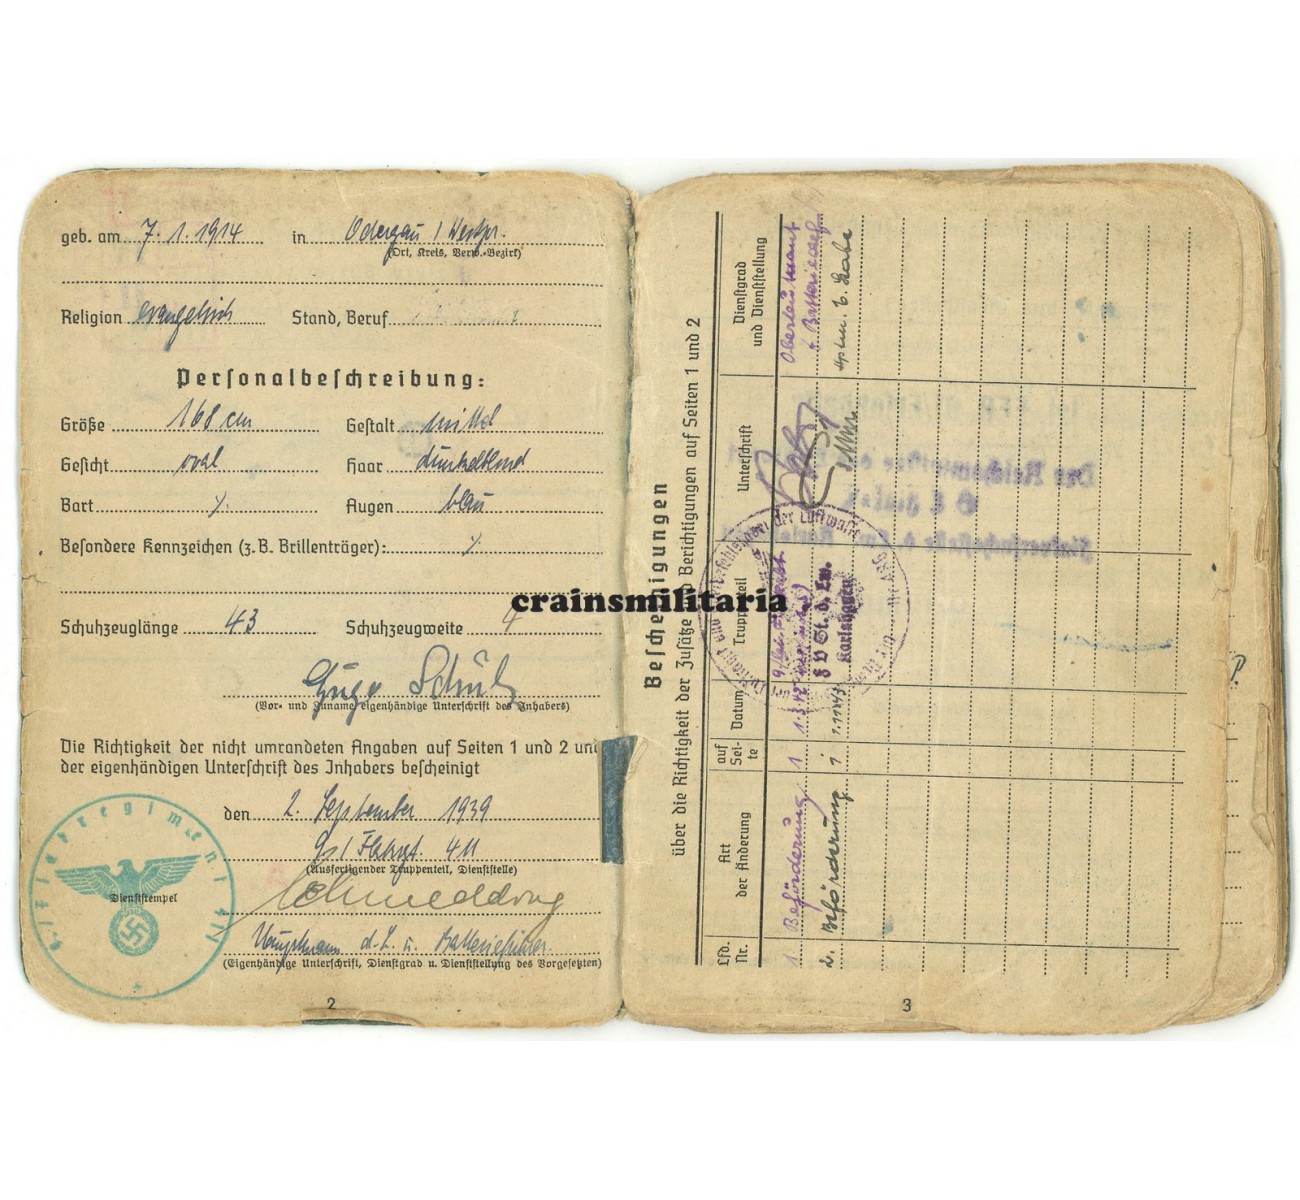 geb. am 7. 1. 1914 in Odergau / Westpr.
(Ort, Kreis, Verw.-Bezirk)
Religion evangelisch Stand, Beruf
Personalbeschreibung:
Größe 168 cm Gestalt mittel
Gesicht oval Haar dunkelblond
Bart ⁒ Augen blau
Besondere Kennzeichen (z. B. Brillenträger): ⁒
Schuhzeuglänge 43 Schuhzeugweite 4
Hugo Schulz
(Vor- und Zuname, eigenhändige Unterschrift des Inhabers)
Die Richtigkeit der nicht umrandeten Angaben auf Seiten 1 und 2 und
der eigenhändigen Unterschrift des Inhabers bescheinigt
den 2. September 1939
9./ Flakrgt. 411
(Ausfertigender Truppenteil, Dienststelle)
Dienststempel
Hauptmann d. L. u. Batterieführer
(Eigenhändige Unterschrift, Dienstgrad u. Dienststellung des Vorgesetzten)
2
crainsmilitaria
Bescheinigungen
über die Richtigkeit der Zusätze und Berichtigungen auf Seiten 1 und 2
Lfd. Nr.
Art der Änderung
auf Sei- te
Datum
Truppenteil
Unterschrift
Dienstgrad und Dienststellung
1. Beförderung 1 1.3.42
Oberleutnant
u. Batterief.
2. Beförderung 1 1.11.43
F V St. d. Lw.
Karlshagen
3